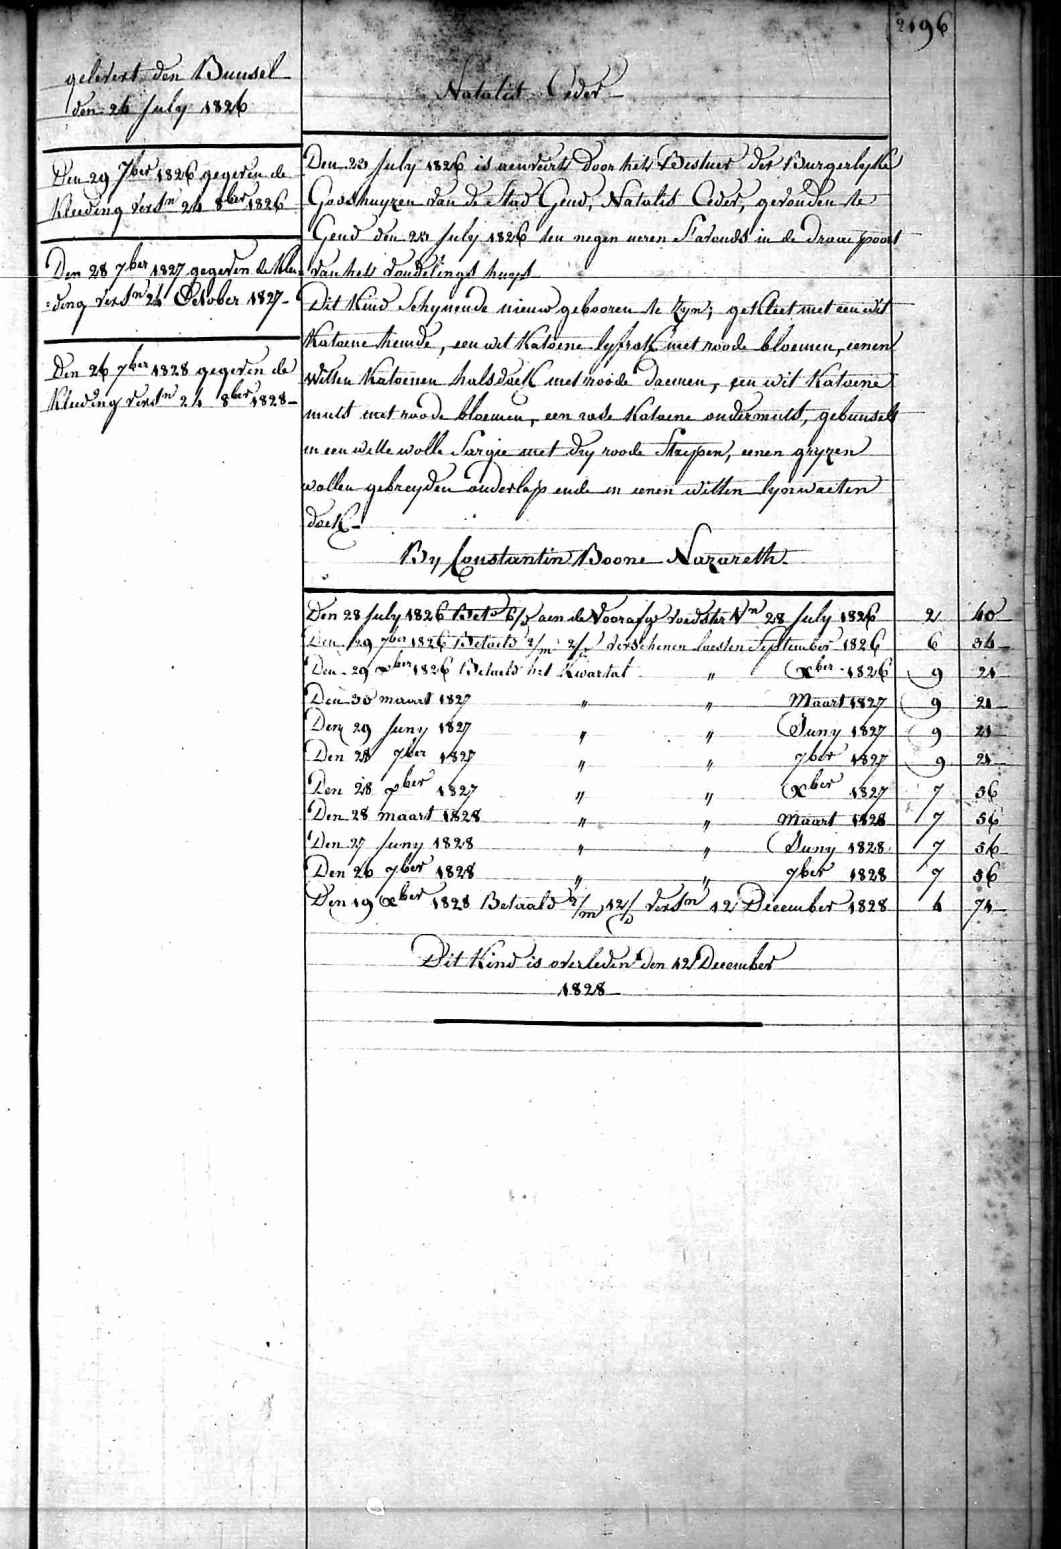 2196
gelevert den Bunsel
den 26 July 1826
Den 29 7ber 1826 gegeven de
Kleeding versn 24 8ber 1826
Den 28 7ber 1827 gegeven de Klee-
:ding versn 24 October 1827-
Den 26 7ber 1828 gegeven de
Kleeding versn 24 8ber 1828-
Natalis Ceder
Den 23 July 1826 is aenveirt door het Bestuer der Burgerlyke
Godshuyzen van de Stad Gend, Natalis Ceder, gevonden te
Gend den 23 July 1826 ten negen ueren s'avonds in de draai poort
van hets vondelings huys
Dit Kind Schynende nieuw gebooren te zyn; gekleet met een wit
Katoene hemde, een wit Katoene lyfrok met roode bloemen, eenen
witten Katoenen halsdoek met roode daemen, een wit Katoene
muts met roode bloemen, een rose Katoene ondermuts, gebunselt
in een witte wolle Sargie met dry roode Strypen, eenen gryzen
wollen gebreyden onderlap ende in eenen witten lynwaeten
doek-
By Constantin Boone Nazareth.
Den 28 July 1826 Bet. 6/d aen de Voorafge voedster Vn 28 July 1826 2 40
Den 29 7ber 1826 Betaeld 2/m 2/d verschenen laesten September 1826 6 34
Den 29 xber 1826 Betaeld het Kwartal " xber 1826 9 21
Den 30 maart 1827 " " Maart 1827 9 21
Den 29 Juny 1827 " " Juny 1827 9 21
Den 28 7ber 1827 " " 7ber 1827 9 21
Den 28 xber 1827 " " xber 1827 7 56
Den 28 maart 1828 " " Maart 1828 7 56
Den 27 Juny 1828 " " Juny 1828 7 56
Den 26 7ber 1828 " " 7ber 1828 7 56
Den 19 xber 1828 Betaald 2/m 12/d versn 12 December 1828 4 71
Dit Kind is overleden den 12 December
1828